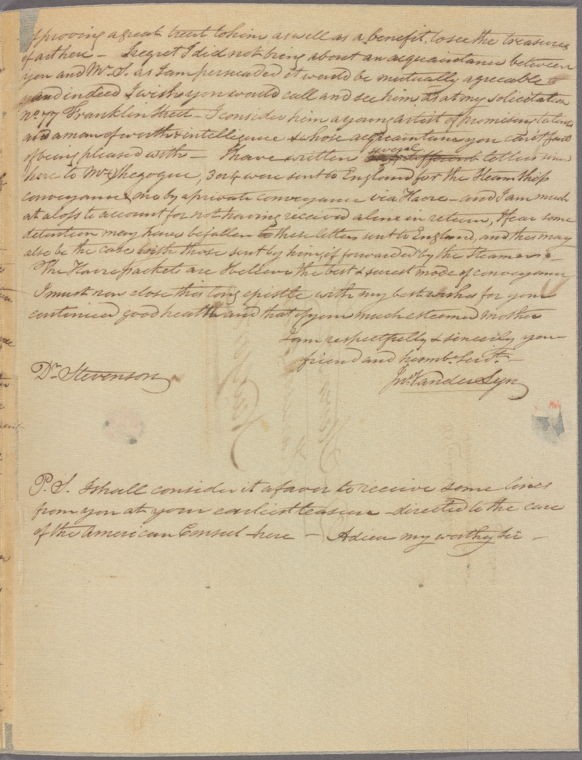 proving a great treat to him as well as a benefit, to see the treasures
of art here – I regret I did not bring about an acquaintance between
you and Mr. S. as I am persuaded it would be mutually agreeable to
and indeed I wish you would call and see him, at my solicitation
No 77 Franklin Street – I consider him a young artist of promising talents
and a man of worth & intelligence & whose acquaintance you can't fail
of being pleased with – I have written several letters since
here to Mr Shegogue, 3 or 4 were sent to England for the Steam Ship
conveyance & one by a private conveyance via Havre – and I am much
at a loss to account for not having received a line in return, I fear some
detention may have befallen these letters sent to England, and this may
also be the case with those sent by him, if forwarded by the Steamers –
The Havre Packets are I believe the best & surest mode of conveyance
I must now close this long epistle with my best wishes for your
continued good health and that of your much esteemed Mother
I am respectfully & sincerely your
friend and humbe. Servt. –
Dr. Stevenson
Jn. Vanderlyn
P.S. I shall consider it a favor to receive some lines
from you at your earliest leasure – directed to the care
of the American Consul here – Adieu my worthy Sir –